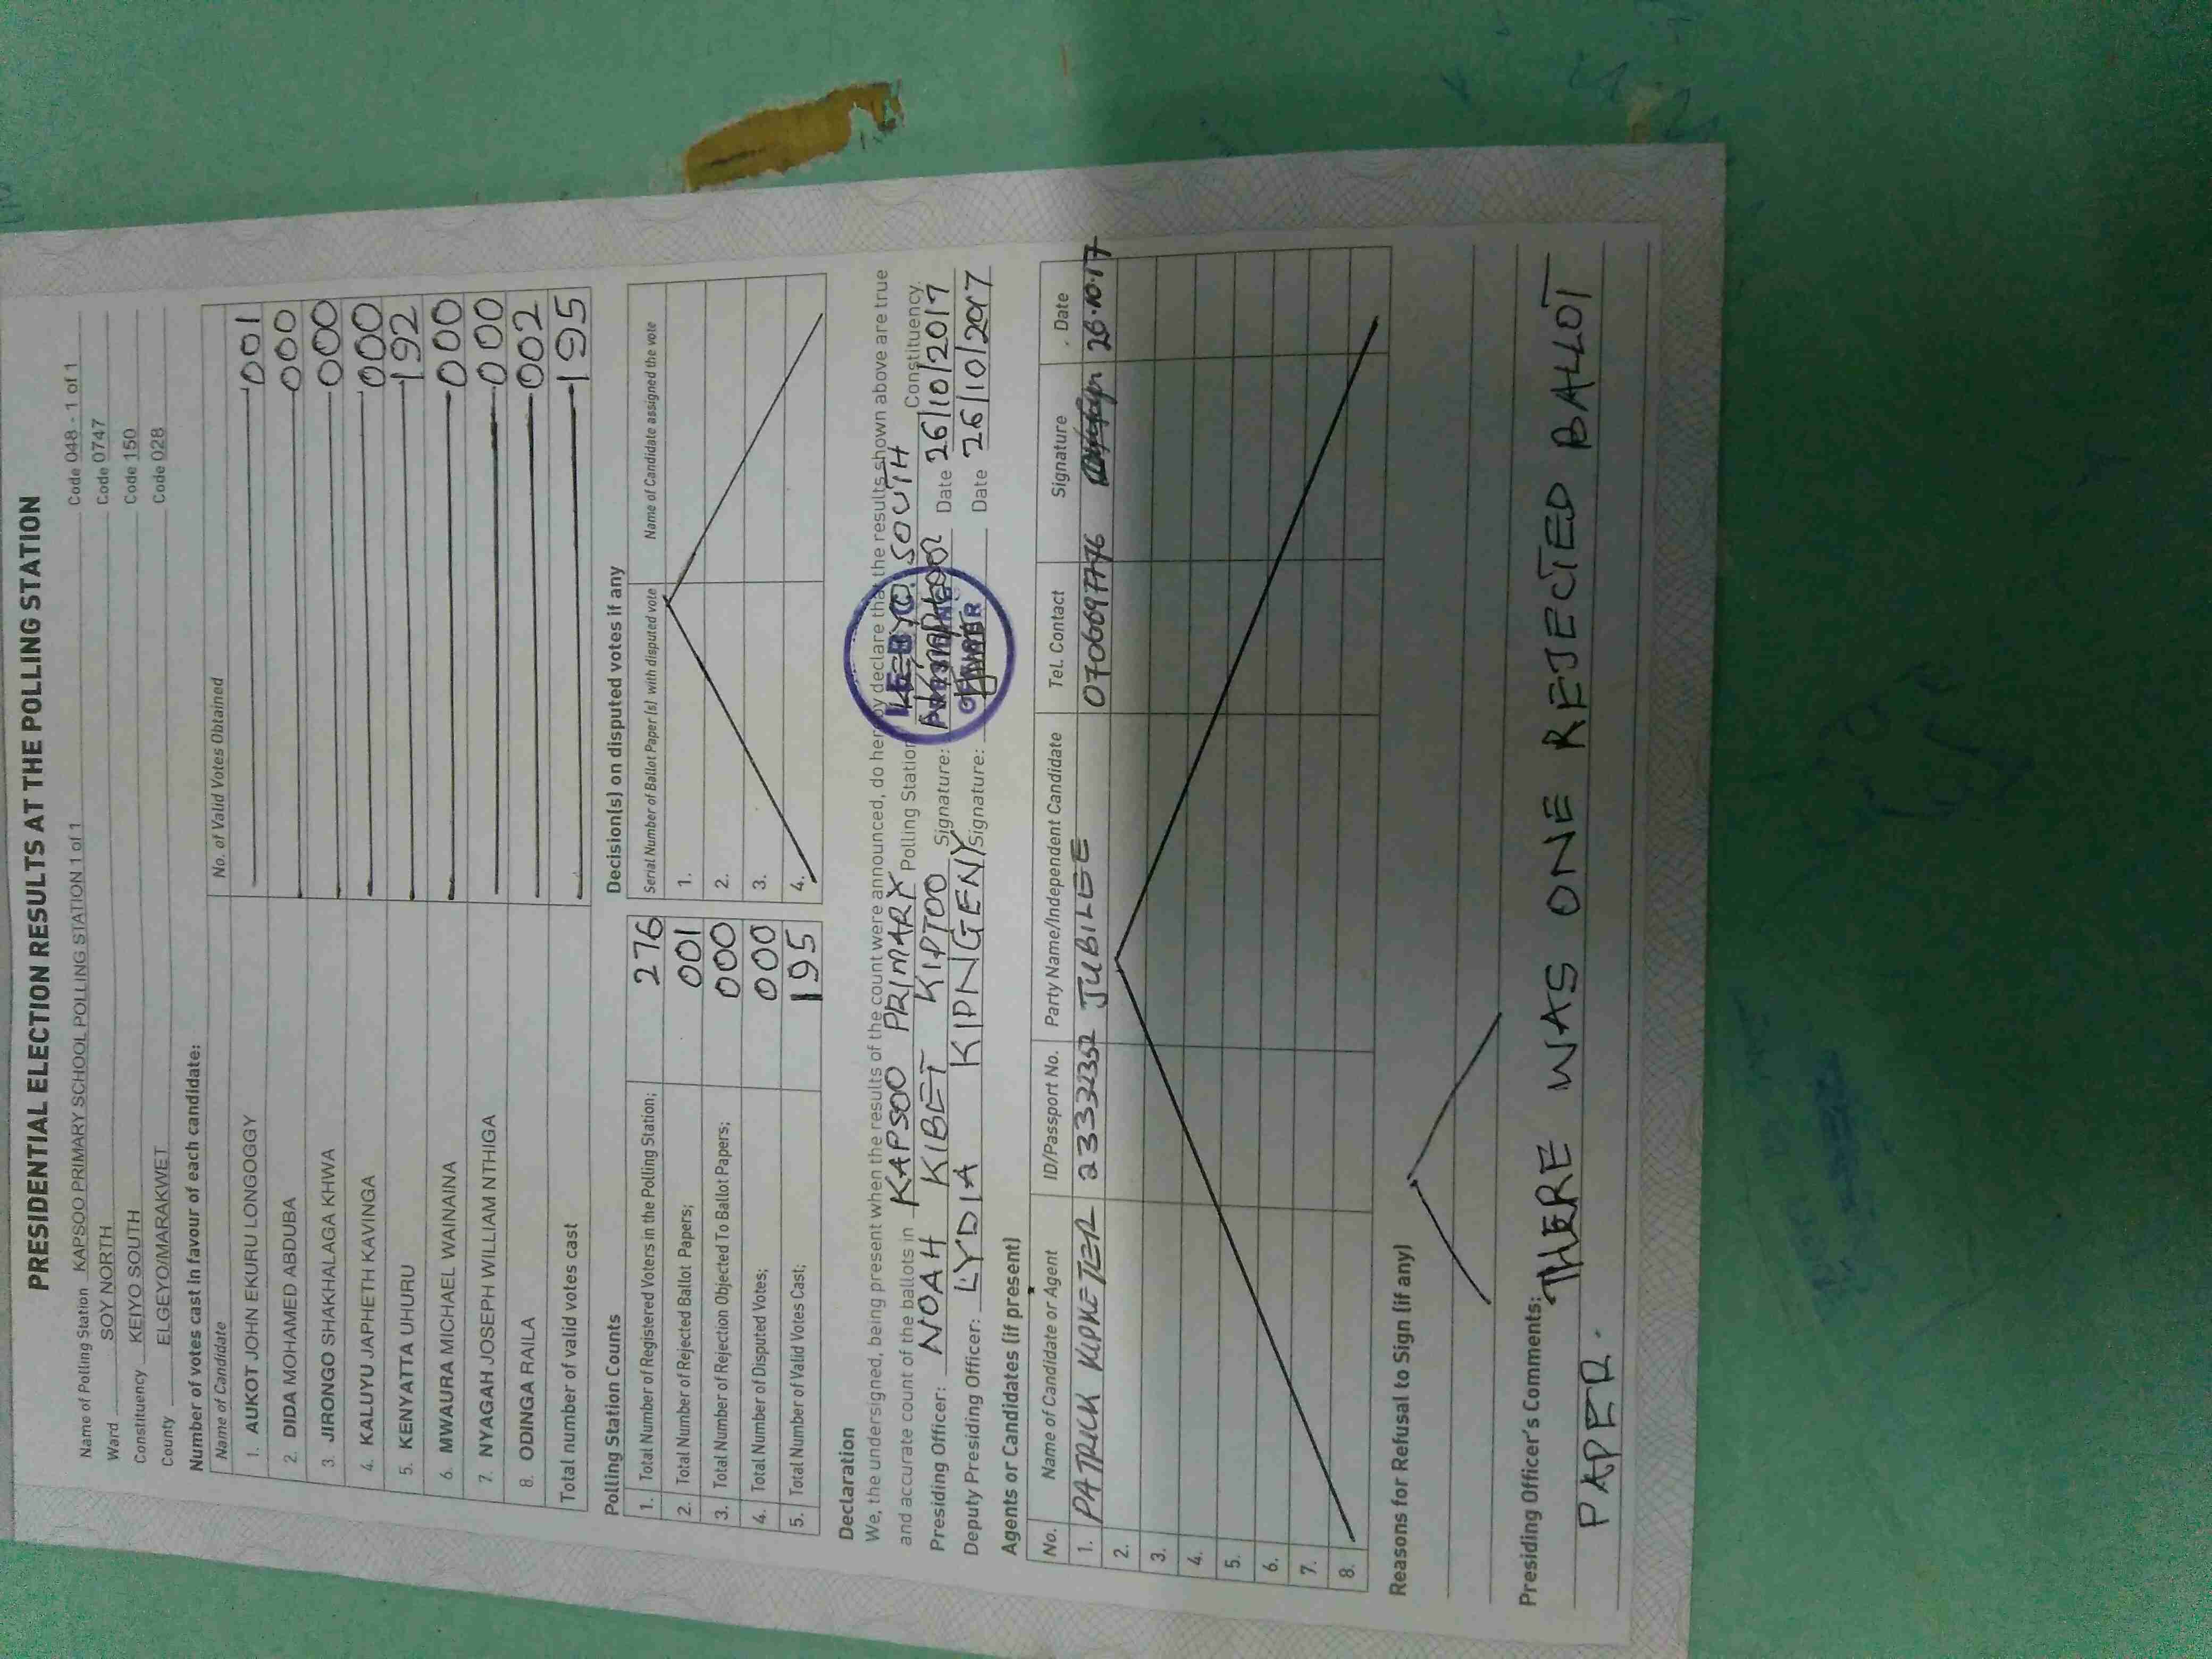 PRESIDENTIAL ELECTION RESULTS AT THE POLLING STATION
Name of Polling Station KAPSOO PRIMARY SCHOOL POLLING STATION 1 of 1 Code 048 - 1 of 1
Ward SOY NORTH Code 0747
Constituency KEIYO SOUTH Code 150
County ELGEYO/MARAKWET Code 028
Number of votes cast in favour of each candidate:
Name of Candidate No. of Valid Votes Obtained
1. AUKOT JOHN EKURU LONGOGGY 001
2. DIDA MOHAMED ABDUBA 000
3. JIRONGO SHAKHALAGA KHWA 000
4. KALUYU JAPHETH KAVINGA 000
5. KENYATTA UHURU 192
6. MWAURA MICHAEL WAINAINA 000
7. NYAGAH JOSEPH WILLIAM NTHIGA 000
8. ODINGA RAILA 002
Total number of valid votes cast 195
Polling Station Counts
1. Total Number of Registered Voters in the Polling Station; 276
2. Total Number of Rejected Ballot Papers; 001
3. Total Number of Rejection Objected To Ballot Papers; 000
4. Total Number of Disputed Votes; 000
5. Total Number of Valid Votes Cast; 195
Decision(s) on disputed votes if any
Serial Number of Ballot Paper (s) with disputed vote Name of Candidate assigned the vote
1.
2.
3.
4.
Declaration
We, the undersigned, being present when the results of the count were announced, do hereby declare that the results shown above are true
and accurate count of the ballots in KAPSOO PRIMARY Polling Station KEIYO SOUTH Constituency.
Presiding Officer: NOAH KIBET KIPTOO Signature: Date 26/10/2017
Deputy Presiding Officer: LYDIA KIPNGENY Signature: Date 26/10/2017
Agents or Candidates (if present)
No. Name of Candidate or Agent ID/Passport No. Party Name/Independent Candidate Tel. Contact Signature Date
1. PATRICK KIPKETER 23332352 JUBILEE 0706697776 26.10.17
2.
3.
4.
5.
6.
7.
8.
Reasons for Refusal to Sign (if any)
Presiding Officer's Comments:
THERE WAS ONE REJECTED BALLOT
PAPER.